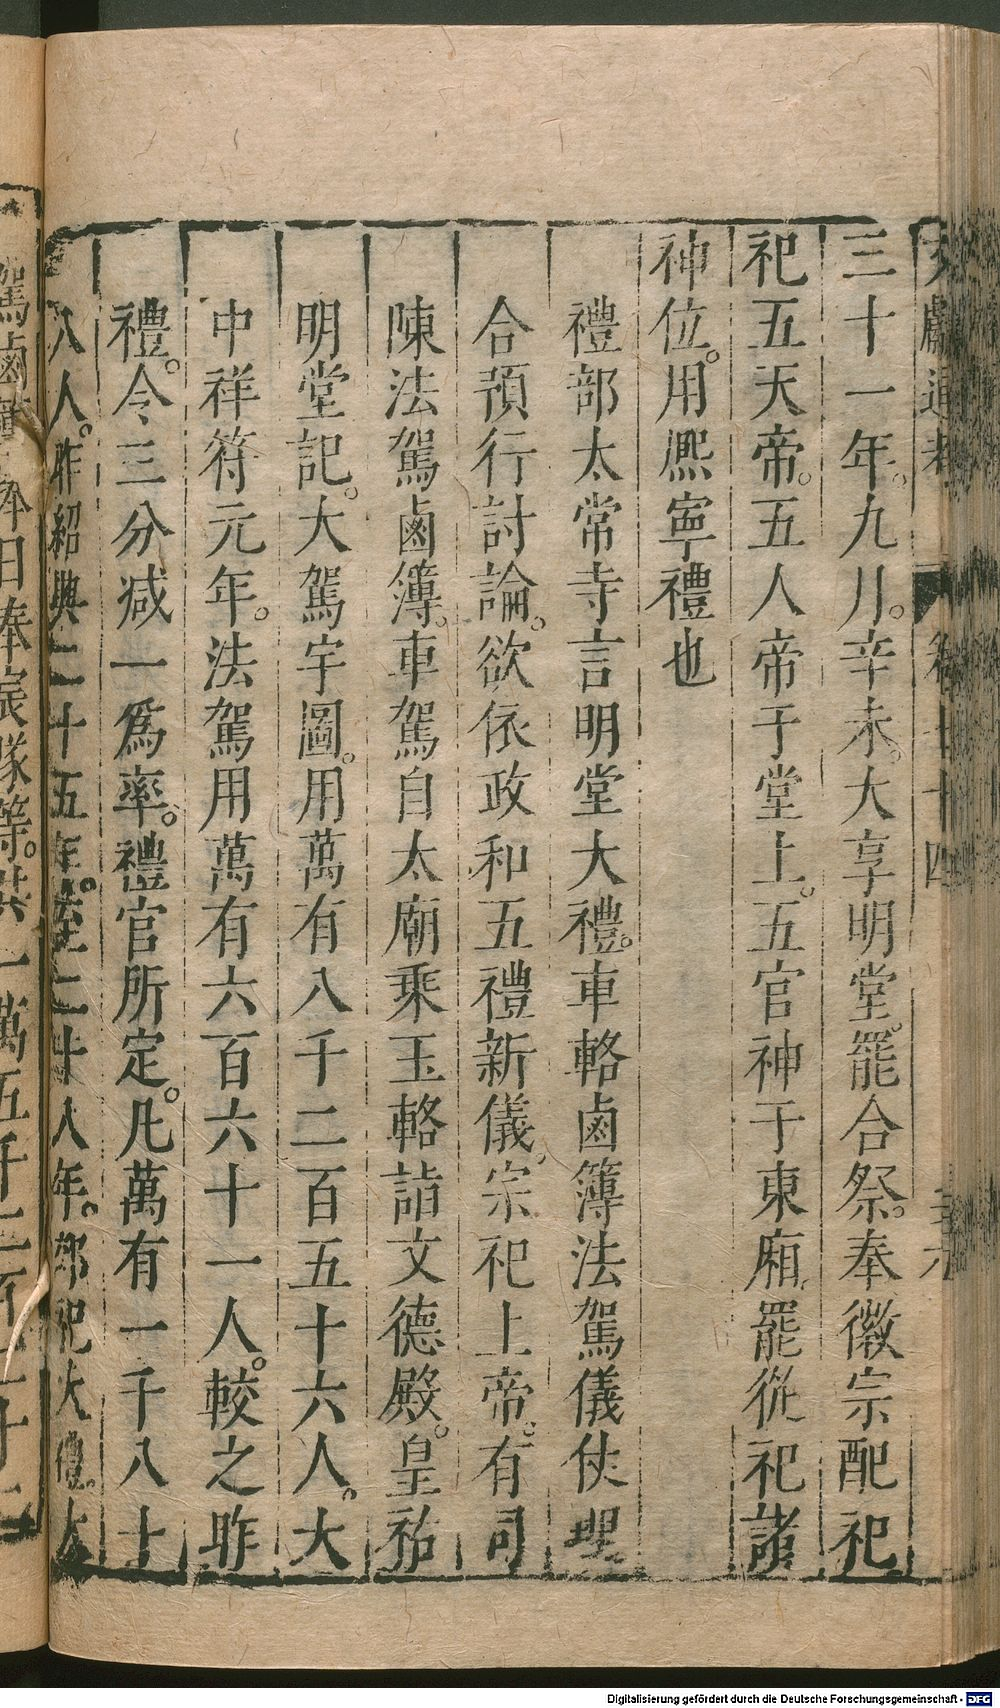 文獻通考 卷七十四
三十一年。九月。辛未。大享明堂。罷合祭。奉徽宗配祀
祀五天帝。五人帝于堂上。五官神于東廂。罷從祀諸
神位。用熈寧禮也
禮部太常寺言明堂大禮。車輅鹵簿法駕儀仗理
合預行討論。欲依政和五禮新儀。宗祀上帝。有司
陳法駕鹵簿。車駕自太廟乘玉輅詣文德殿。皇祐
明堂記。大駕字圖。用萬有八千二百五十六人。大
中祥符元年。法駕用萬有六百六十一人。較之昨
禮。令三分减一爲率。禮官所定。凡萬有一千八十
八人。昨紹興二十五年。至二十八年。郊祀大禮。大
駕鹵簿 日奉宸隊等。共一萬五千二百二十二
Digitalisierung gefördert durch die Deutsche Forschungsgemeinschaft - DFG